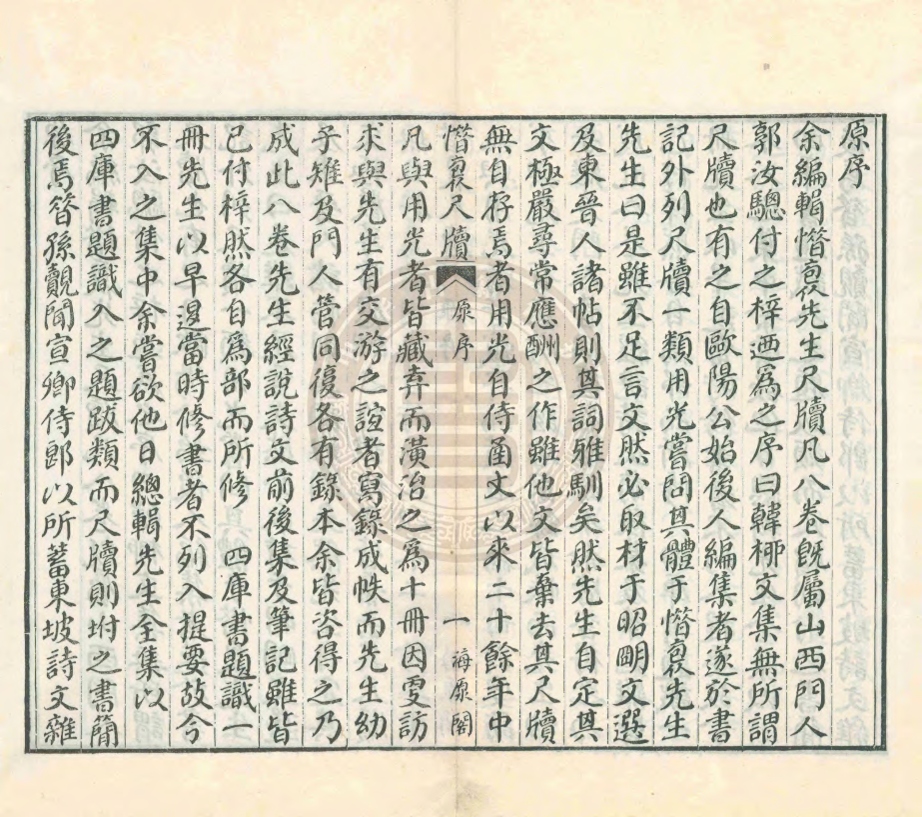 原序
余編輯惜裒先生尺牘凡八卷旣屬山西門人
郭汝驄付之梓迺爲之序曰韓栁文集無所謂
尺牘也有之自歐陽公始後人編集者遂於書
記外列尺牘一類用光嘗問其體于惜裒先生
先生曰是雖不足言文然必取材于昭明文選
及東晉人諸帖則其詞雅馴矣然先生自定其
文極嚴尋常應酬之作雖他文皆棄去其尺牘
無自存焉者用光自侍函丈以來二十餘年中
惜裒尺牘 原序 一 海原閣
凡與用光者皆藏弆而潢治之爲十冊因更訪
求與先生有交游之誼者寫錄成帙而先生幼
子雉及門人管同復各有錄本余皆咨得之乃
成此八卷先生經說詩文前後集及筆記雖皆
已付梓然各自爲部而所修 四庫書題識一
冊先生以早退當時修書者不列入提要故今
不入之集中余嘗欲他日總輯先生全集以
四庫書題識入之題跋類而尺牘則坿之書簡
後焉昔孫覿聞宣卿侍郎以所蓄東坡詩文雜